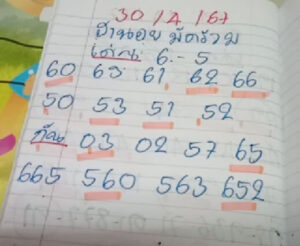 30/4/67
ฮานอย มัดรวม
เด่น 6.-5
60 65 61 62 66
50 53 51 52
03 02 57 65
665 560 563 652